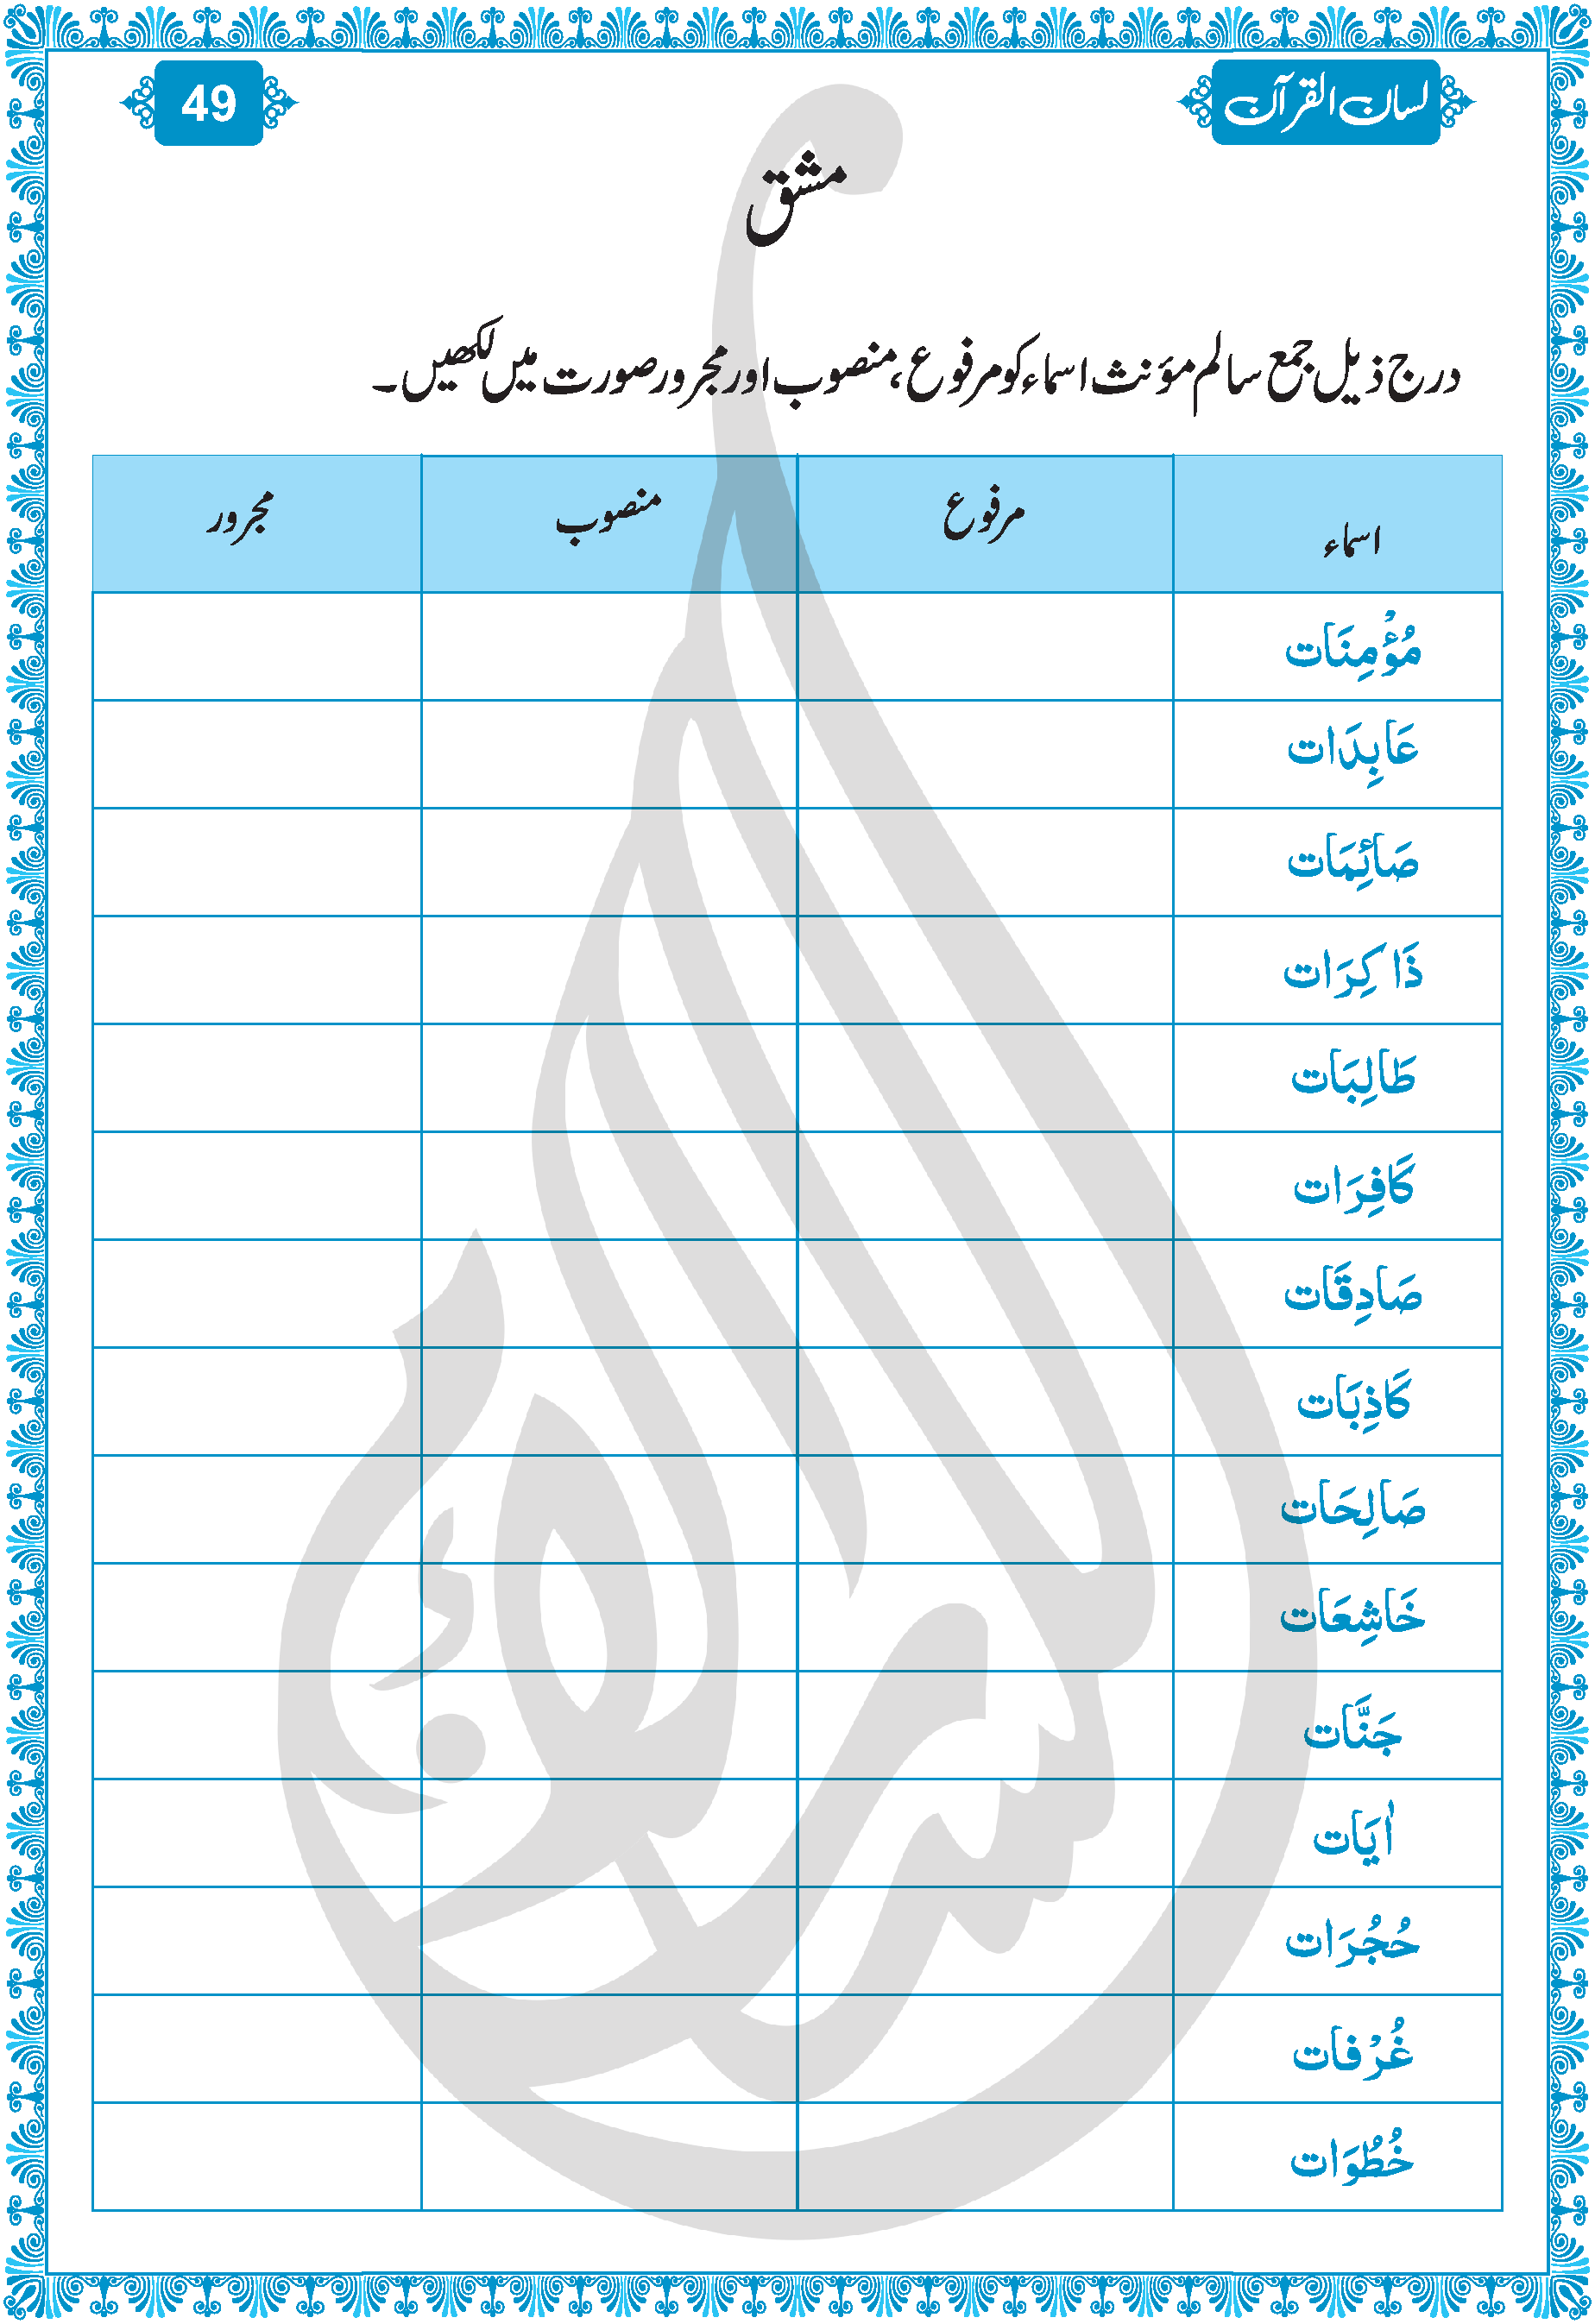 لسان القرآن
49
مشق
درج ذیل جمع سالم مؤنث اسماء کو مرفوع، منصوب اور مجرور صورت میں لکھیں۔
اسماء مرفوع منصوب مجرور
مُؤْمِنَات
عَابِدَات
صَائِمَات
ذَاکِرَات
طَالِبَات
کَافِرَات
صَادِقَات
کَاذِبَات
صَالِحَات
خَاشِعَات
جَنَّات
اٰیَات
حُجُرَات
غُرْفات
خُطُوَات